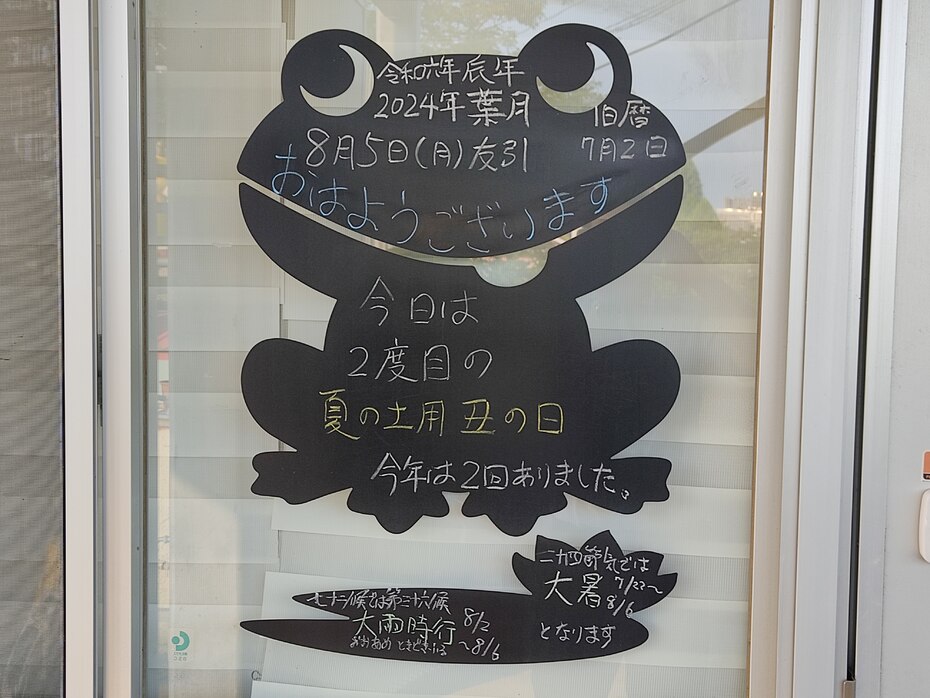 令和六年辰年
2024年葉月
旧暦
8月5日(月)友引
7月2日
おはようございます
今日は
2度目の
夏の土用丑の日
今年は2回ありました。
二十四節気では
大暑 7/22〜
8/6
となります
七十二候では第三十六候
大雨時行 8/2
おおあめ ときどきふる 〜8/6